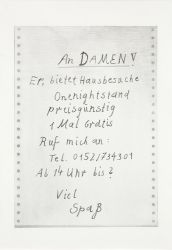 An DAMEN!
Er, bietet Hausbesuche
Onenightstand
preisgünstig
1 Mal Gratis
Ruf mich an:
Tel. 0152/734301
Ab 14 Uhr bis ?
Viel
Spaß